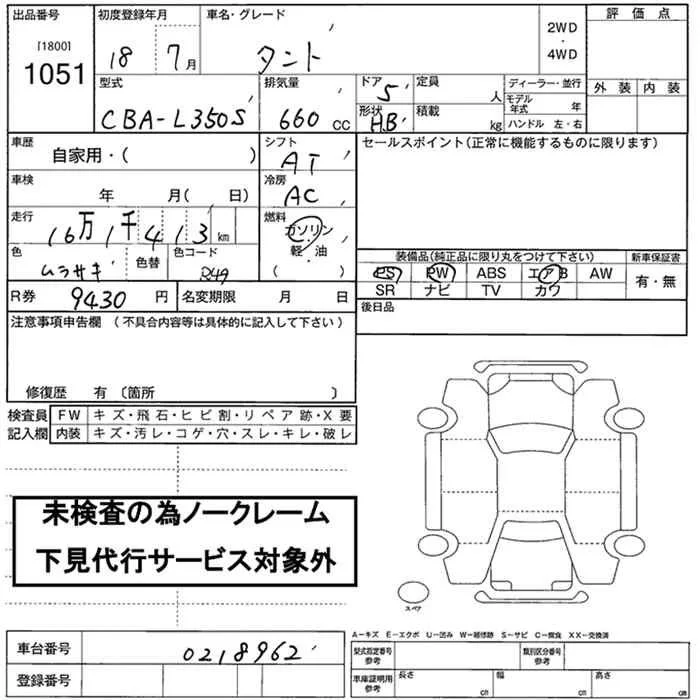 出品番号
[1800]
1051
初度登録年月
18 7月
車名・グレード
タント
2WD
・
4WD
評価点
外装 内装
型式
CBA-L350S
排気量
660 CC
ドア 5
形状 H.B
定員 人
積載 kg
ディーラー・並行
モデル年式 年
ハンドル 左・右
車歴
自家用・( )
シフト
AT
セールスポイント(正常に機能するものに限ります)
車検
年 月( 日)
冷房
AC
走行
16万1千413km
燃料
ガソリン
軽・油
( )
色
ムラサキ
色替
色コード
装備品(純正品に限り丸をつけて下さい)
新車保証書
PS PW ABS エアB AW
有・無
SR ナビ TV カワ
R券 9430円
名変期限 月 日
後日品
注意事項申告欄 (不具合内容等は具体的に記入して下さい)
修復歴 有 〔箇所 〕
検査員
記入欄
FW キズ・飛石・ヒビ割・リペア跡・X要
内装 キズ・汚レ・コゲ・穴・スレ・キレ・破レ
未検査の為ノークレーム
下見代行サービス対象外
スペア
A−キズ E−エクボ U−凹み W−補修跡 S−サビ C−腐食 XX−交換済
車台番号 0218962
登録番号
型式指定番号
参考
類別区分番号
参考
車庫証明用
参考
長さ cm
幅 cm
高さ cm